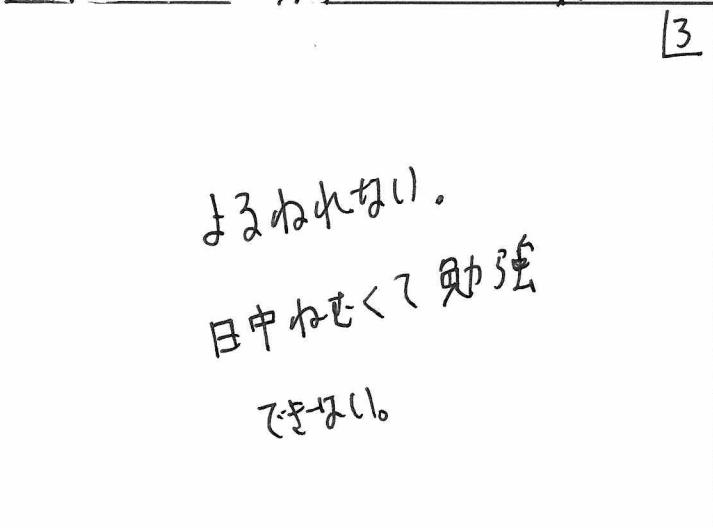 3
よるねれない.
日中ねむくて勉強
できない。